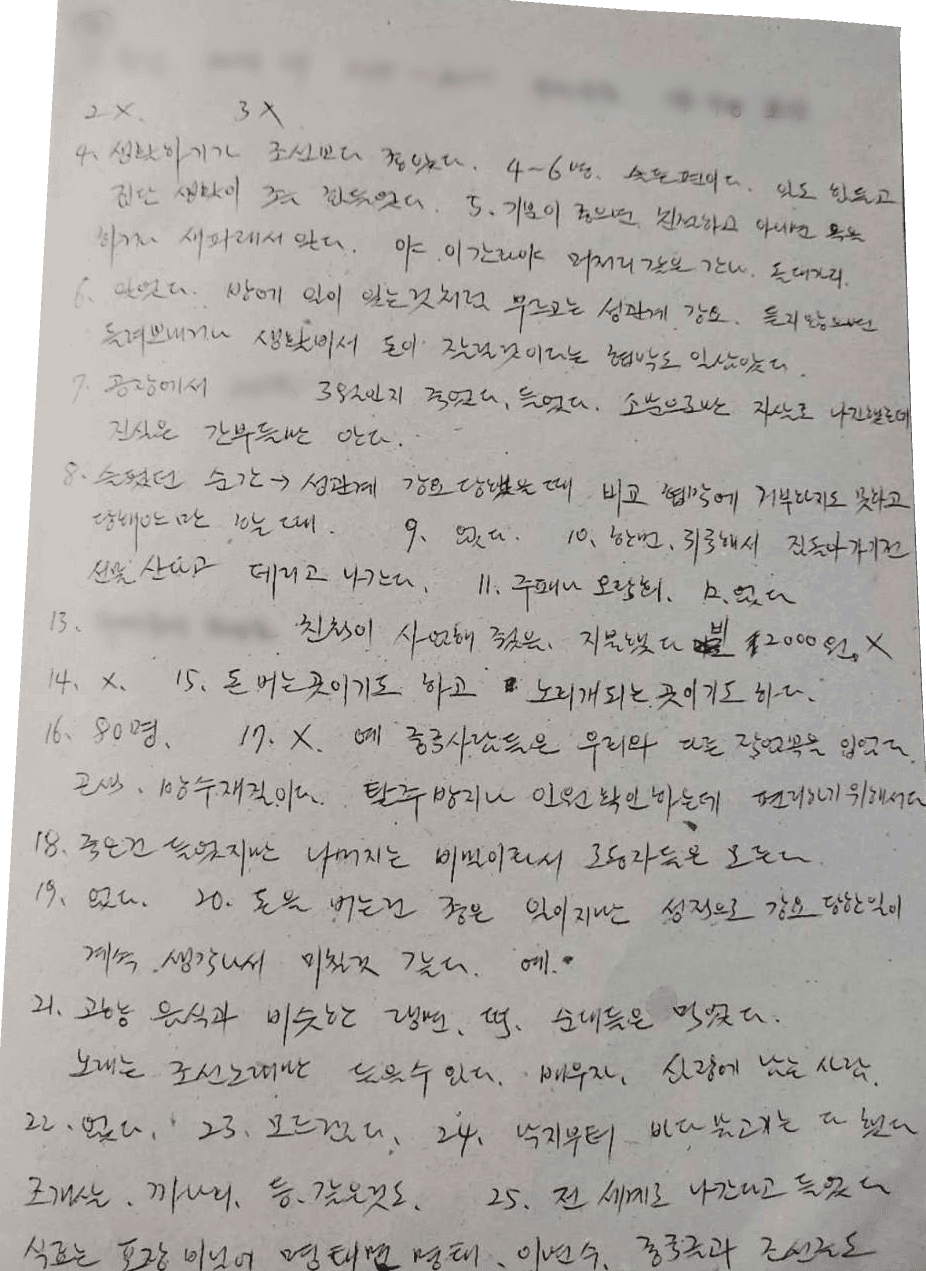 2 X. 3 X
4. 생활하기가 조선보다 좋았다. 4~6명. 슬픈편이다. 일도 힘들고
집단 생활이 조금 힘들었다. 5. 기분이 좋으면 친절하고 아니면 욕을
하거나 새파래서 온다. 야 이 간나야 머저리 같은 간나. 돌대가리.
6. 있었다. 방에 일이 있는것처럼 부르고는 성관계 강요. 듣지않으면
돌려보내거나 생활비서 돈이 잘릴것이다는 협박도 일삼았다.
7. 공장에서 3명인지 죽었다, 들었다. 소문으로만 자살로 나긴했는데
진실은 간부들만 안다.
8. 슬펐던 순간→ 성관계 강요 당했을 때 비고 협박에 거부하지도 못하고
당해야만 할 때. 9. 없다. 10. 한번, 귀국해서 집돌아가기전
선물 산다고 데리고 나간다. 11. 주패나 오락회. 12. 없다
13. 친척이 사업해 줬음. 지불했다 빌 $2000 원. X
14. X. 15. 돈 버는 곳이기도 하고 노리개되는 곳이기도 하다.
16. 80명. 17. X. 예 중국사람들은 우리와 다른 작업복을 입었다.
곤색. 방수재질이다. 탈주방지나 인원 확인하는데 편리하기 위해서다
18. 죽은건 들었지만 나머지는 비밀이라서 로동자들은 모른다.
19. 없다. 20. 돈을 버는건 좋은 일이지만 성적으로 강요 당한일이
계속 생각나서 미칠것 같다. 예.
21. 고향 음식과 비슷한 랭면, 떡, 순대들은 먹었다.
노래는 조선노래만 들을수 있다. 배우자, 심장에 남는 사람.
22. 없다. 23. 모르겠다. 24. 낙지부터 바다 물고기는 다 했다
조개살, 까나리, 등 같은것도. 25. 전 세계로 나간다고 들었다
식료는 포장 비닐에 명태면 명태, 이면수, 중국글과 조선글도